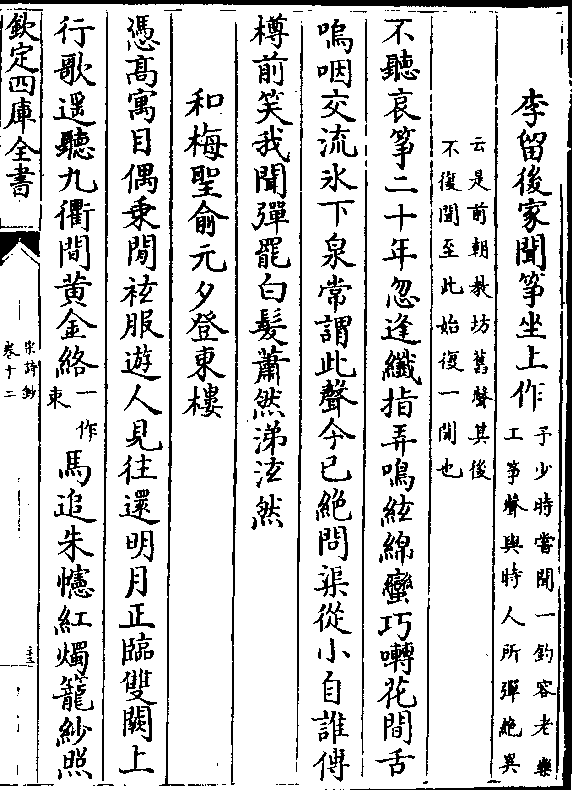 李留後家聞箏坐上作予少時嘗聞一鈞容老樂工箏聲與時人所彈絶異
云是前朝教坊舊聲其後不復聞至此始復一聞也
不聽哀箏二十年忽逢纖指弄鳴絃綿蠻巧囀花間舌
嗚咽交流氷下泉常謂此聲今已絶問渠從小自誰傳
樽前笑我聞彈罷白髮蕭然涕泫然
和梅聖俞元夕登東樓
憑髙寓目偶乗閒袨服遊人見往還明月正臨雙闕上
行歌遥聽九衢間黄金絡一作束馬追朱幰紅燭籠紗照
欽定四庫全書
宋詩鈔
卷十二